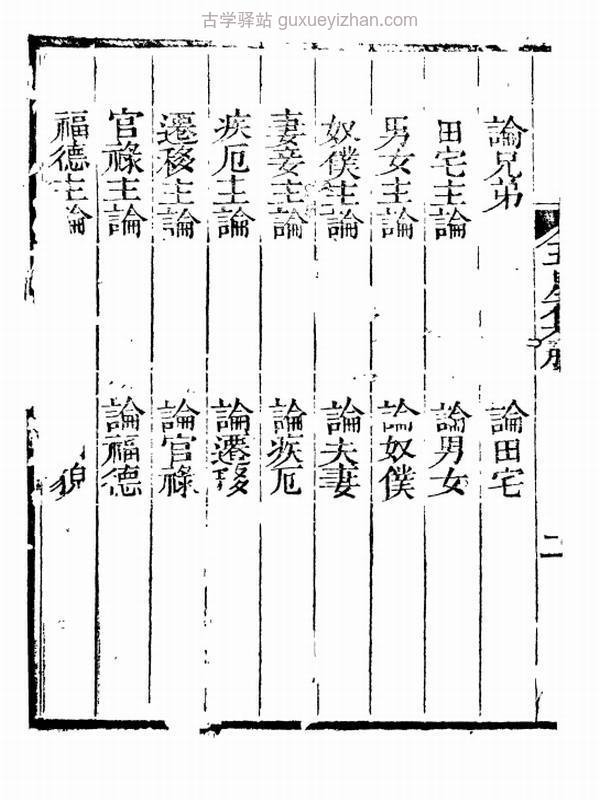 古学驿站 guxueyizhan.com
論兄弟 論田宅
田宅主論 論男女
男女主論 論奴僕
奴僕主論 論夫妻
妻妾主論 論疾厄
疾厄主論 論遷移
遷移主論 論官祿
官祿主論 論福德
福德主論 貌
二